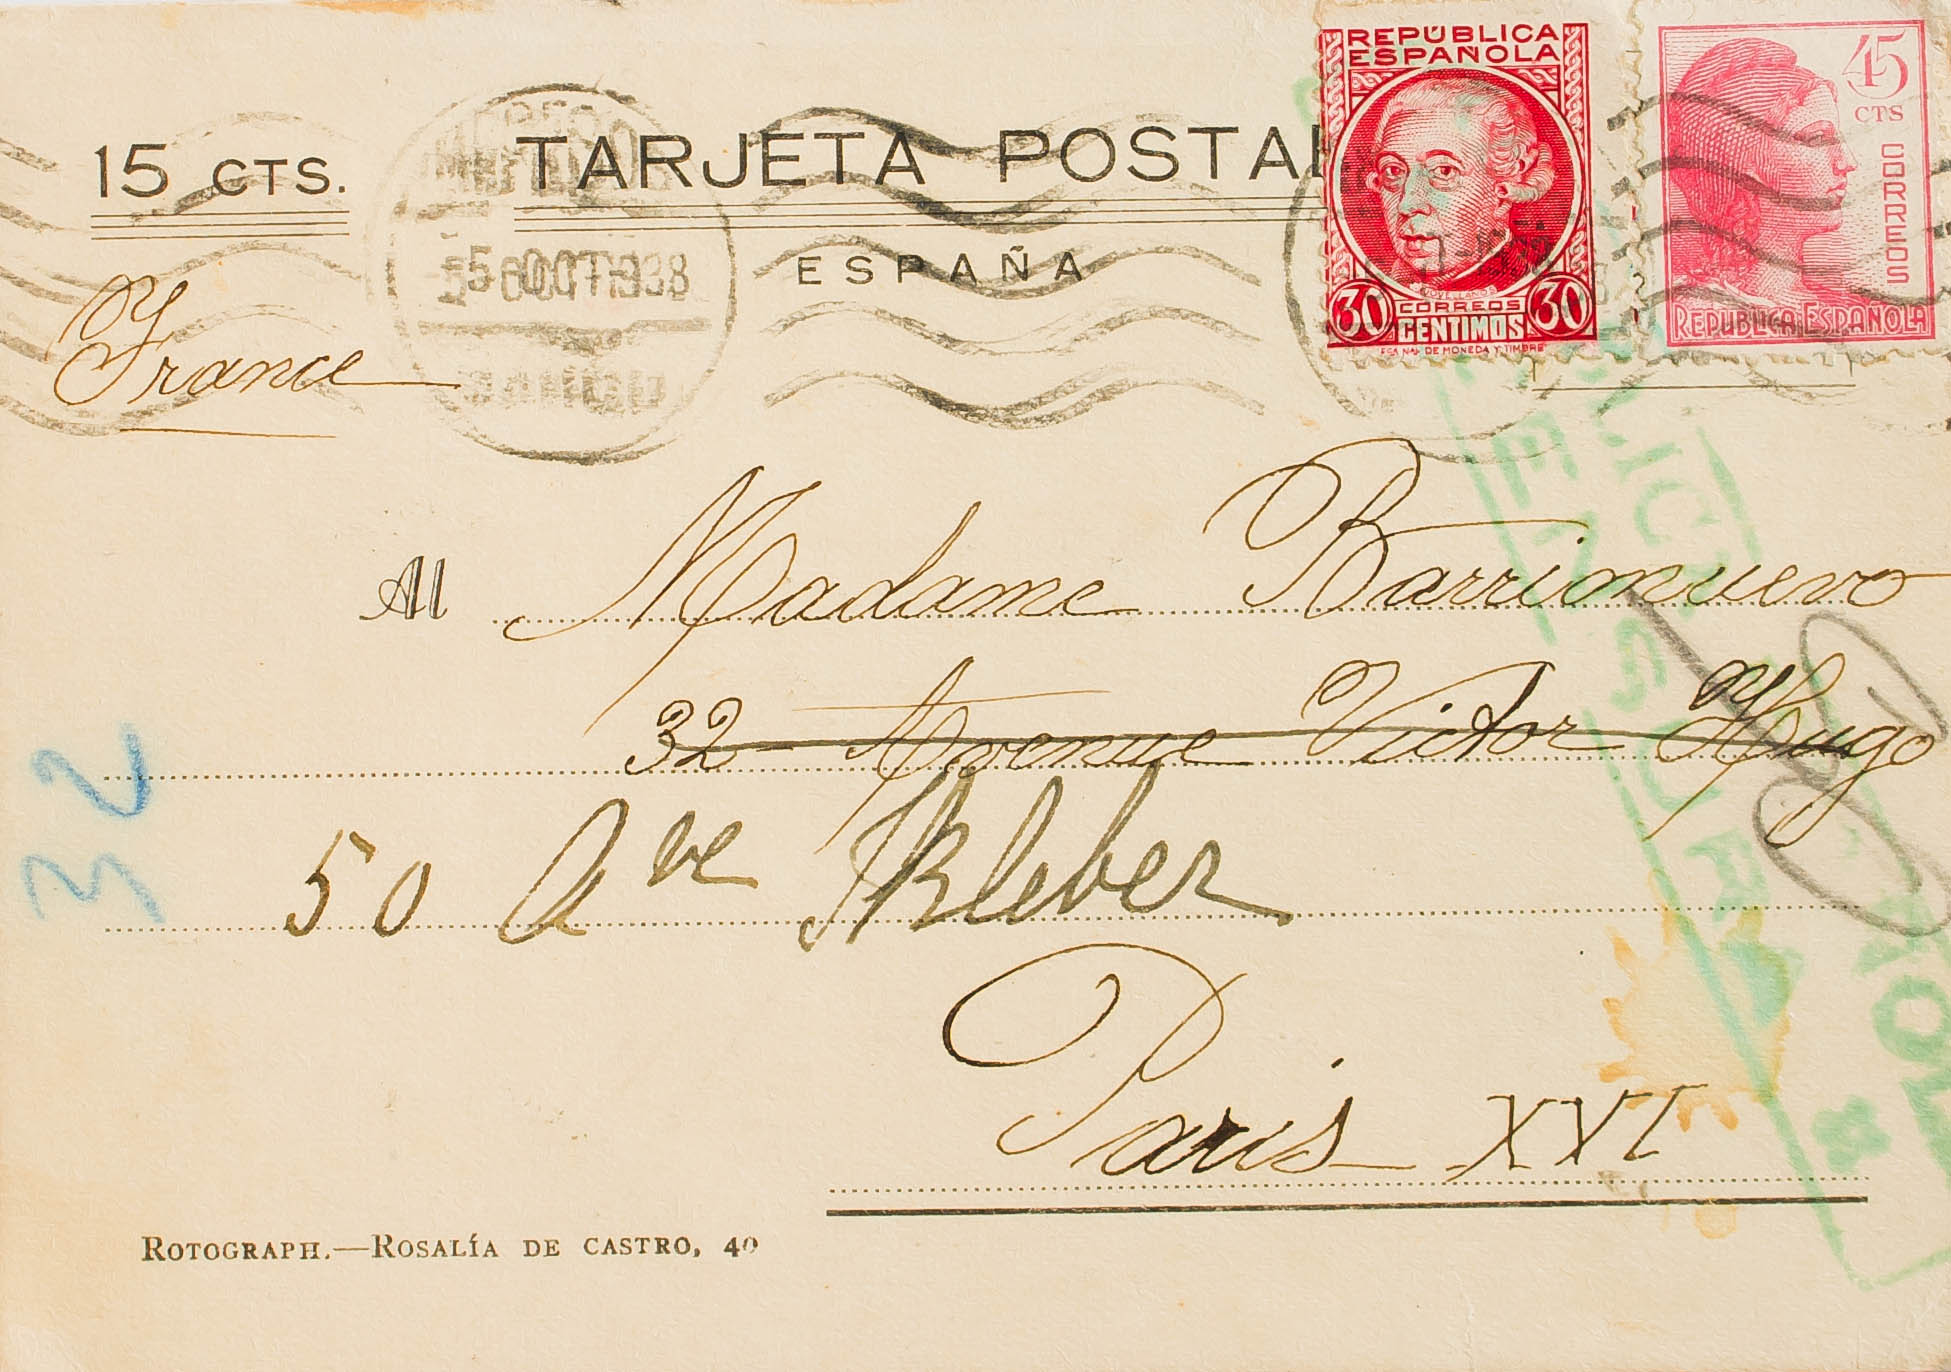 REPÚBLICA
ESPAÑOLA
45
CTS
CORREOS
15 CTS.
TARJETA POSTAL
ESPAÑA
OCT 1938
JOVELLANOS
30 CORREOS 30
CENTIMOS
FCA NAL DE MONEDA Y TIMBRE
REPUBLICA ESPAÑOLA
France
Al Madame Barrionuevo
32 Avenue Victor Hugo
50 Ave Kleber
Paris XVI
32
CENSURA
ROTOGRAPH.—ROSALÍA DE CASTRO, 40